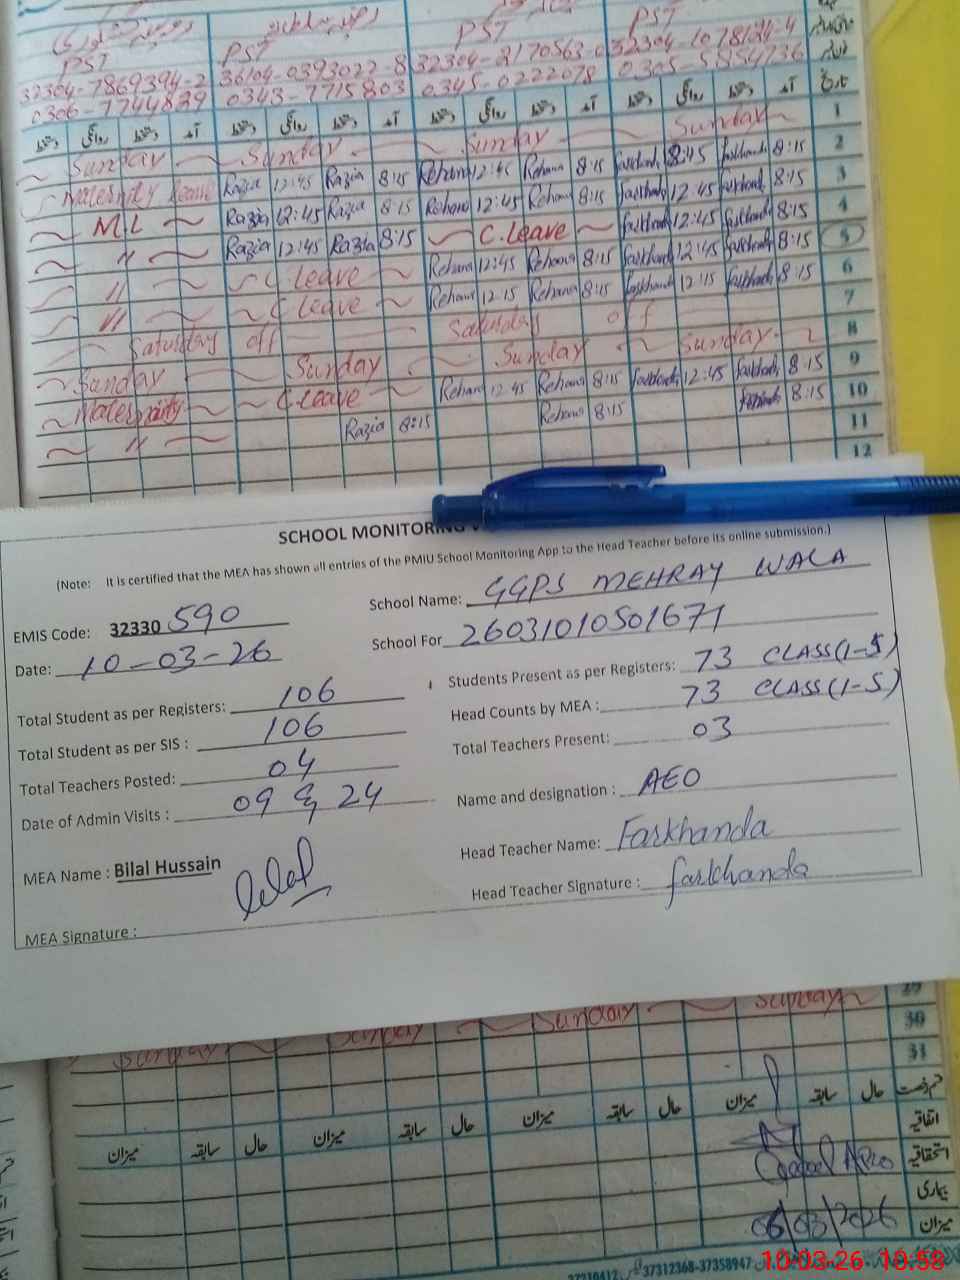 PST PST PST PST
32304-7869394-2 36104-0393022-8 32304-2170563-0 32304-1078124-4
0306-7744839 0343-7715803 0345-0222078 0305-5854736
دستخط روانگی دستخط آمد دستخط روانگی دستخط آمد دستخط روانگی دستخط آمد دستخط روانگی دستخط آمد تاریخ
Sunday Sunday Sunday Sunday 1
Maternity Leave Razia 12:45 Razia 8:15 Rehana 12:45 Rehana 8:15 farkhanda 8:45 farkhanda 8:15 2
ML Razia 12:45 Razia 8:15 Rehana 12:45 Rehana 8:15 farkhanda 12:45 farkhanda 8:15 3
" Razia 12:45 Razia 8:15 C.Leave farkhanda 12:45 farkhanda 8:15 4
" C Leave Rehana 12:45 Rehana 8:15 farkhanda 12:45 farkhanda 8:15 5
" C Leave Rehana 12:15 Rehana 8:15 farkhanda 12:15 farkhanda 8:15 6
Saturday off Saturday off 7
Sunday Sunday Sunday Sunday 8
Maternity C.Leave Rehana 12:45 Rehana 8:15 farkhanda 12:45 farkhanda 8:15 9
" Razia 8:15 Rehana 8:15 8:15 10
11
12
SCHOOL MONITORING
(Note: It is certified that the MEA has shown all entries of the PMIU School Monitoring App to the Head Teacher before its online submission.)
EMIS Code: 32330 590 School Name: GGPS MEHRAY WALA
Date: 10-03-26 School For 26031010501671
Total Student as per Registers: 106 Students Present as per Registers: 73 CLASS(1-5)
Total Student as per SIS : 106 Head Counts by MEA : 73 CLASS(1-5)
Total Teachers Posted: 04 Total Teachers Present: 03
Date of Admin Visits : 09 & 24 Name and designation : AEO
MEA Name : Bilal Hussain Head Teacher Name: Farkhanda
MEA Signature : Bilal Head Teacher Signature : farkhanda
Sunday Sunday Sunday Sunday 29
30
31
میزان سابقہ حال میزان سابقہ حال میزان سابقہ حال میزان سابقہ حال قسم رخصت
اتفاقیہ
استحقاقیہ
بیماری
06/03/2026 میزان
37310412 37312368-37358947
10-03-26 10:58